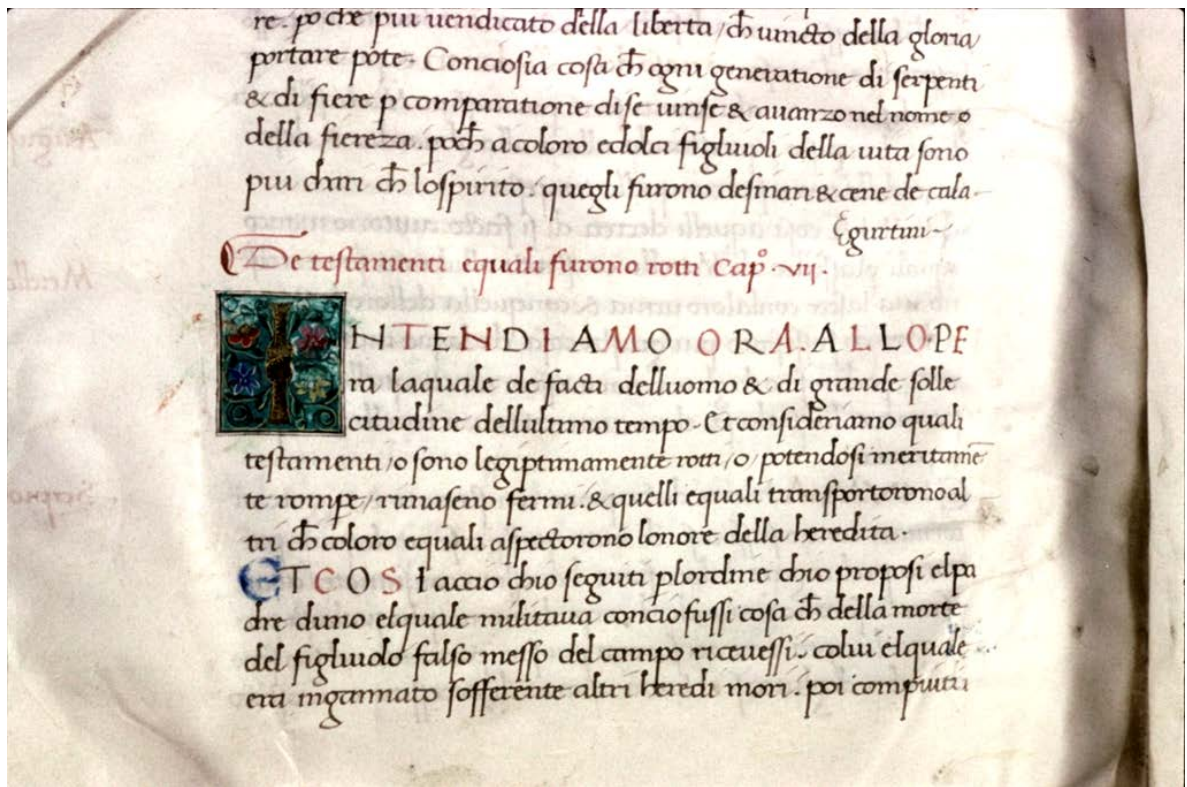 re. po che piu uendicato della liberta / ch̄ uincto della gloria
portare pote. Conciosia cosa ch̄ ogni generatione di serpenti
& di fiere p comparatione di se uinse & auanzo nel nome
della fiereza. poch̄ a coloro e dolci figluioli della uita sono
piu chari ch̄ lo spirito. quegli furono desinari & cene de cala-
gurtini-
De testamenti equali furono rotti Cap.º vij.
INTENDIAMO ORA. ALLOPE
ra laquale de facti delluomo & di grande solle
citudine dellultimo tempo. Et consideriamo quali
testamenti / o sono legiptimamente rotti / o potendosi meritamē
te rompe / rimaseno fermi. & quelli equali transportorono al
tri ch̄ coloro equali aspectorono lonore della heredita.
ET COSI accio chio seguiti plordine chio proposi el pa
dre duno elquale militaua concio fussi cosa ch̄ della morte
del figluiolo falso messo del campo riceuessi. colui elquale
era ingannato sofferente altri heredi mori. poi compiuti